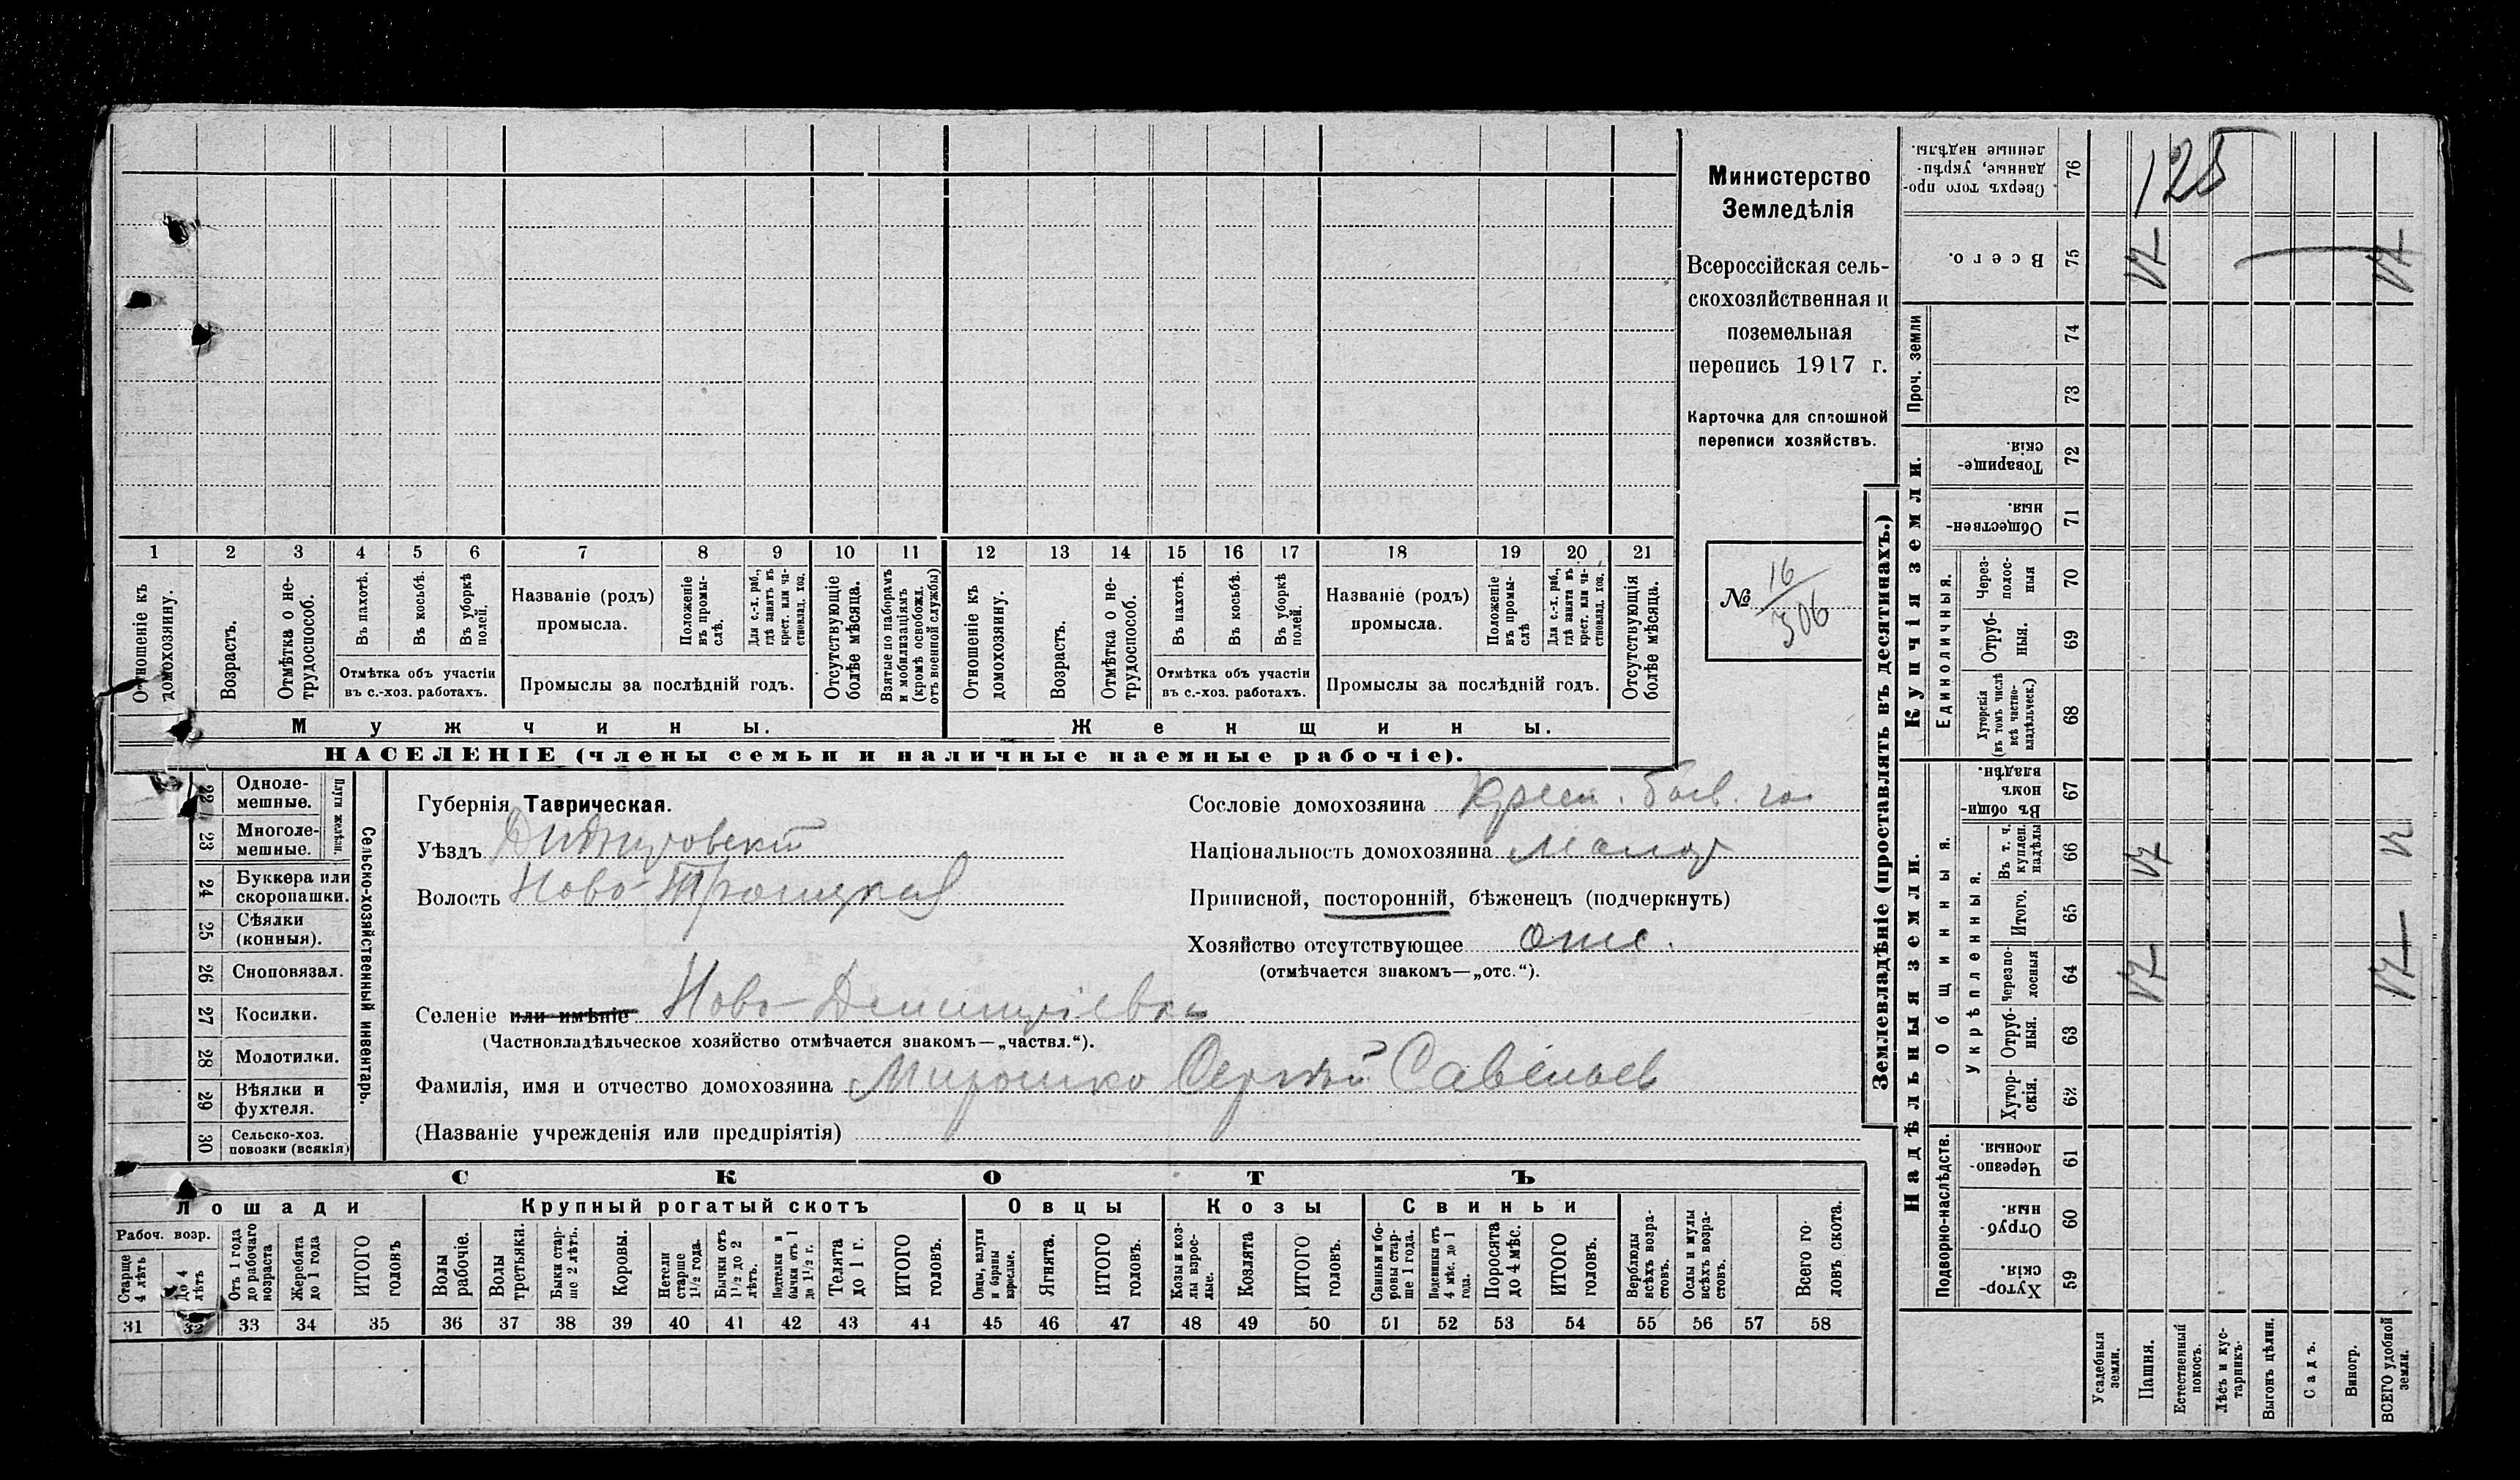 1 2 3 4 5 6 7 8 9 10 11 12 13 14 15 16 17 18 19 20 21
Отношеніе къ домохозяину.
Возрастъ.
Отмѣтка о не-
трудоспособ.
Въ пахотѣ.
Въ косьбѣ.
Въ уборкѣ
полей.
Отмѣтка объ участіи
въ с.-хоз. работахъ.
Названіе (родъ)
промысла.
Положеніе
въ промы-
слѣ.
Для с.-х. раб.,
гдѣ занятъ въ
крест. или ча-
стновлад. хоз.
Промыслы за послѣдній годъ.
Отсутствующіе
болѣе мѣсяца.
Взятые по наборамъ
и мобилизаціямъ
(кромѣ освобожд.
отъ военной службы)
Отношеніе къ
домохозяину.
Возрастъ.
Отмѣтка о не-
трудоспособ.
Въ пахотѣ.
Въ косьбѣ.
Въ уборкѣ
полей.
Отмѣтка объ участіи
въ с.-хоз. работахъ.
Названіе (родъ)
промысла.
Положеніе
въ промы-
слѣ
Для с.-х. раб.,
гдѣ занята въ
крест. или ча-
стновлад. хоз.
Промыслы за послѣдній годъ.
Отсутствующія
болѣе мѣсяца.
Мужчины.
Женщины.
НАСЕЛЕНІЕ (члены семьи и наличные наемные рабочіе).
Министерство
Земледѣлія
Всероссійская сель-
скохозяйственная и
поземельная
перепись 1917 г.
Карточка для сплошной
переписи хозяйствъ.
№ 16/306
22 Одноле-
мешные.
23 Многоле-
мешные.
Плуги желѣзн.
24 Буккера или
скоропашки.
25 Сѣялки
(конныя).
26 Сноповязал.
27 Косилки.
28 Молотилки.
29 Вѣялки и
фухтеля.
30 Сельско-хоз.
повозки (всякія)
Сельско-хозяйственный инвентарь.
Губернія Таврическая.
Уѣздъ
Волость Ново-Троицкая
Селеніе или имѣніе Ново-Дмитріевка
(Частновладѣльческое хозяйство отмѣчается знакомъ—„частвл.“).
Фамилія, имя и отчество домохозяина Мирошко Сергѣй Савельев
(Названіе учрежденія или предпріятія)
Сословіе домохозяина
Національность домохозяина Малор
Приписной, посторонній, бѣженец (подчеркнуть)
Хозяйство отсутствующее отс.
(отмѣчается знакомъ—„отс.“).
СКОТЪ
Лошади
Крупный рогатый скотъ
Овцы
Козы
Свиньи
Рабоч. возр.
Старше
4 лѣтъ
До 4
лѣтъ
Отъ 1 года
до рабочаго
возраста
Жеребята
до 1 года
ИТОГО
головъ
Волы
рабочіе.
Волы
третьяки.
Быки стар-
ше 2 лѣтъ.
Коровы.
Нетели
старше
1½ года.
Бычки отъ
1½ до 2
лѣтъ.
Подтелки и
бычки отъ 1
до 1½ г.
Телята
до 1 г.
ИТОГО
головъ.
Овцы, валухи
и бараны
взрослые.
Ягнята.
ИТОГО
головъ.
Козы и коз-
лы взрос-
лые.
Козлята
ИТОГО
головъ.
Свиньи и бо-
ровы стар-
ше 1 года.
Подсвинки отъ
4 мѣс. до 1
года.
Поросята
до 4 мѣс.
ИТОГО
головъ.
Верблюды
всѣхъ возра-
стовъ.
Ослы и мулы
всѣхъ возра-
стовъ.
Всего го-
ловъ скота.
31 32 33 34 35 36 37 38 39 40 41 42 43 44 45 46 47 48 49 50 51 52 53 54 55 56 57 58
Землевладѣніе (проставлять въ десятинахъ.)
Надѣльныя земли.
Купчія земли.
Проч. земли
Подворно-наслѣдств.
Общинныя.
Укрѣпленныя.
Единоличныя.
Сверхъ того про-
данные, укрѣп-
ленные надѣлы.
76
125
Всего.
75
74
73
Товарище-
скія.
72
Обществен-
ныя.
71
Через-
полос-
ныя
70
Отруб-
ныя.
69
Хуторскія
(въ томъ числѣ
всѣ частно-
владѣльческ.)
68
Въ общин-
номъ
владѣн.
67
Въ т. ч.
куплен.
надѣлы
66
Итого.
65
Черезпо-
лосныя
64
Отруб-
ныя.
63
Хутор-
скія.
62
Черезпо-
лосныя.
61
Отруб-
ныя.
60
Хутор-
скія.
59
Усадебныя
земли.
Пашня.
Естественный
покосъ.
Лѣсъ и кус-
тарникъ.
Выгонъ цѣлин.
Садъ.
Виногр.
ВСЕГО удобной
земли.